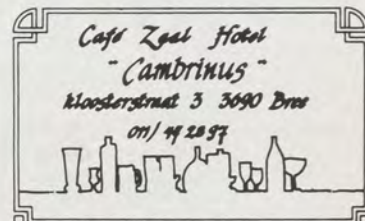 Café Zaal Hotel
"Cambrinus"
kloosterstraat 3 3690 Bree
011/ 47 28 97